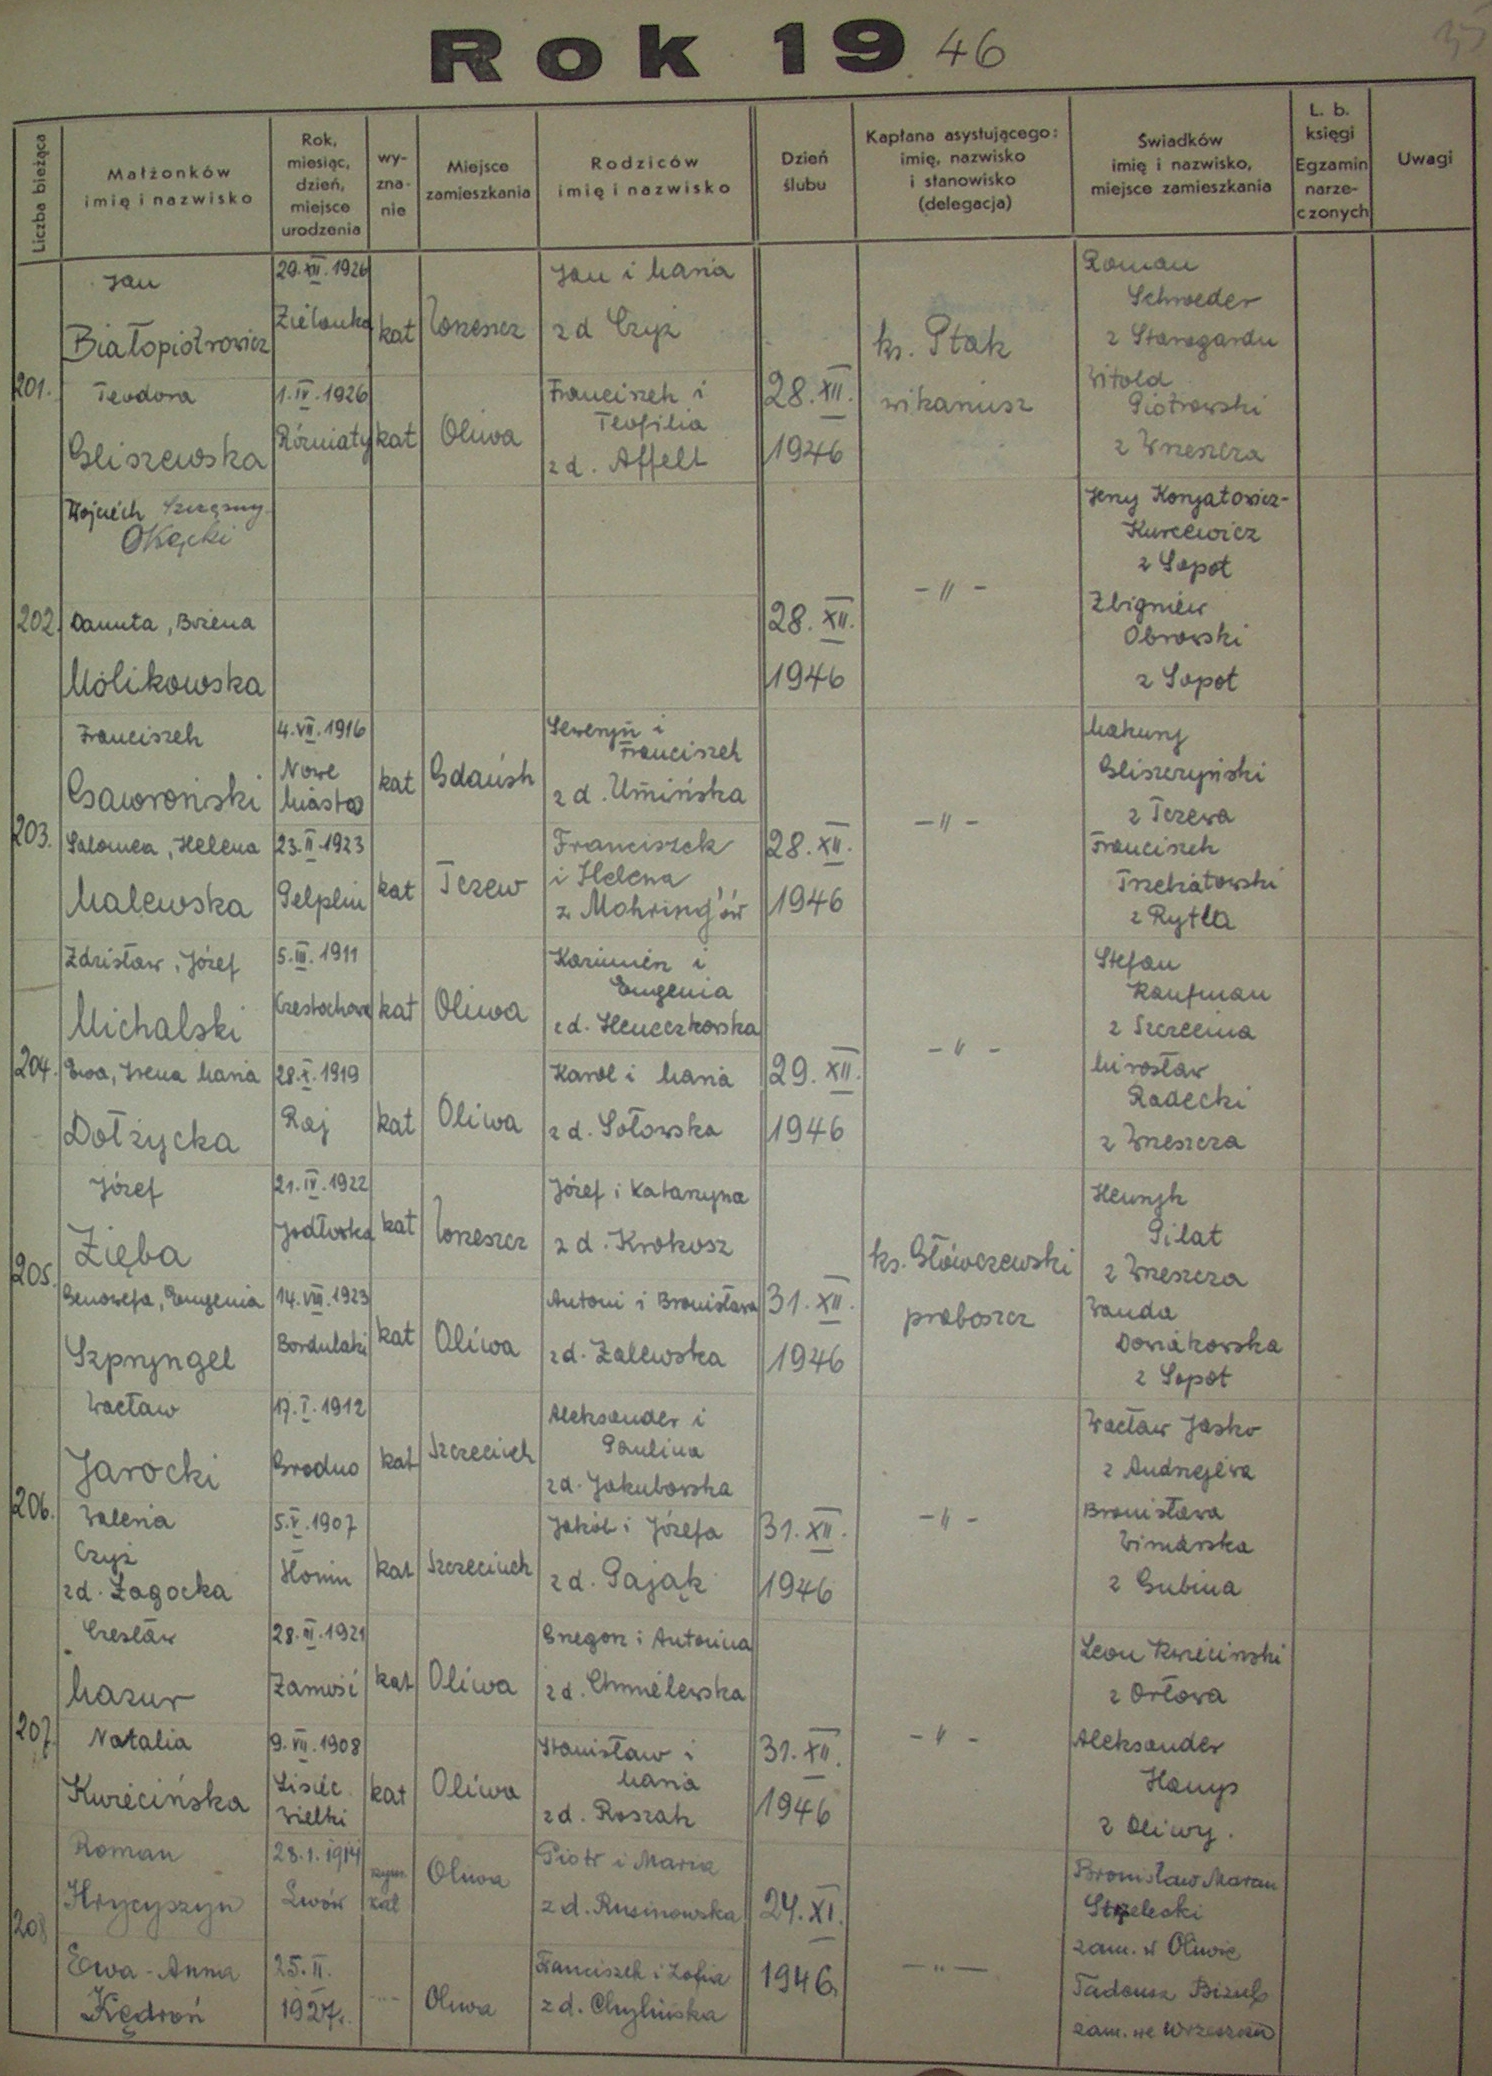 Rok 19 46
35
Liczba bieżąca
Małżonków
imię i nazwisko
Rok,
miesiąc,
dzień,
miejsce
urodzenia
wy-
zna-
nie
Miejsce
zamieszkania
Rodziców
imię i nazwisko
Dzień
ślubu
Kapłana asystującego:
imię, nazwisko
i stanowisko
(delegacja)
Świadków
imię i nazwisko,
miejsce zamieszkania
L. b.
księgi
Egzamin
narze-
czonych
Uwagi
201.
Jan
Białopiotrowicz
29.XII.1926
Zielonka
kat
Wrzeszcz
Jan i Maria
z d Czyż
Teodora
Gliszewska
1.IV.1926
Równiaty
kat
Oliwa
Franciszek i
Teofilia
z d. Affelt
28.XII.
1946
ks. Ptak
wikariusz
Roman
Schroeder
z Starogardu
Witold
Piotrowski
z Wrzeszcza
202.
Wojciech Szczęsny
Okęcki
Danuta, Bożena
Molikowska
28.XII.
1946
- " -
Jerzy Korjatowicz-
Kurcewicz
z Sopot
Zbigniew
Obrowski
z Sopot
203.
Franciszek
Gaworoński
4.VII.1916
Nowe
Miasto
kat
Gdańsk
Seweryn i
Franciszek
z d. Umińska
Salomea, Helena
Malewska
23.II.1923
Pelplin
kat
Tczew
Franciszek
i Helena
z Mohring'ów
28.XII.
1946
- " -
Gliszczyński
z Tczewa
Franciszek
Trzebiatowski
z Rytla
204.
Zdzisław, Józef
Michalski
5.III.1911
Częstochowa
kat
Oliwa
Kazimierz i
Eugenia
z d. Heneczkowska
Ewa, Irena Maria
Dołżycka
28.X.1919
Raj
kat
Oliwa
Karol i Maria
z d. Sołowska
29.XII.
1946
- " -
Stefan
Kaufman
z Szczecina
Mirosław
Radecki
z Wrzeszcza
205.
Józef
Zięba
21.IV.1922
Jodłówka
kat
Wrzeszcz
Józef i Katarzyna
z d. Krokosz
Genowefa, Eugenia
Szpryngel
14.VIII.1923
Bordulaki
kat
Oliwa
Antoni i Bronisława
z d. Zalewska
31.XII.
1946
ks. Główczewski
proboszcz
Henryk
Pilat
z Wrzeszcza
Wanda
Doviakowska
z Sopot
206.
Wacław
Jarocki
17.I.1912
Grodno
kat
Szczecinek
Aleksander i
Paulina
z d. Jakubowska
Waleria
Czyż
z d. Zagocka
5.V.1907
Konin
kat
Szczecinek
Jakób i Józefa
z d. Pająk
31.XII.
1946
- " -
Wacław Jasko
z Andrzejewa
Bronisława
Winarska
z Gubina
207.
Czesław
Mazur
28.III.1921
Zamość
kat
Oliwa
Grzegorz i Antonina
z d. Chmielewska
Natalia
Kwiecińska
9.VII.1908
Lisiec
Wielki
kat
Oliwa
Stanisław i
Maria
z d. Roszak
31.XII.
1946
- " -
Leon Kwieciński
z Orłowa
Aleksander
Hamys
z Oliwy.
208
Roman
Hrycyszyn
28.1.1914
Lwów
rzym.
kat
Oliwa
Piotr i Maria
z d. Rusinowska
Ewa-Anna
Kędroń
25.II.
1927r.
- " -
Oliwa
Franciszek i Zofia
z d. Chylińska
24.XI.
1946.
- " -
Bronisław Maran
Strzelecki
zam. w Oliwie
Tadeusz Bizub
zam. we Wrzeszczu